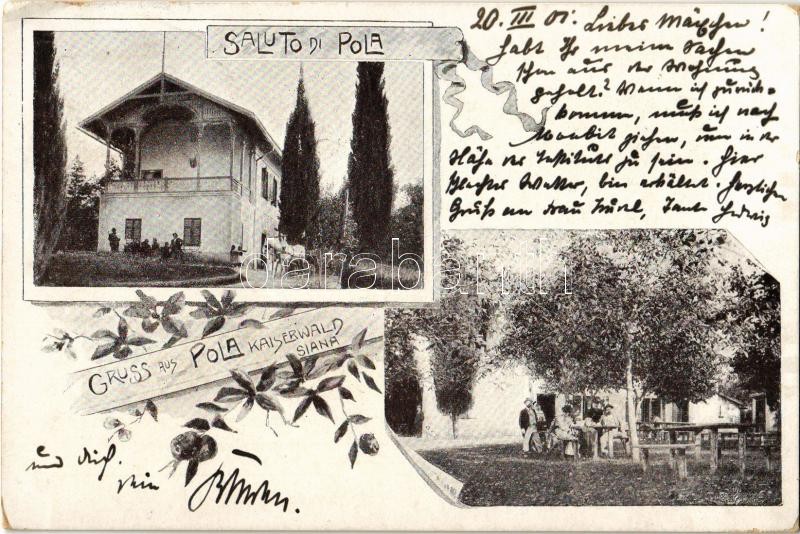 SALUTO DI POLA
20. III 01. Liebes Mäuschen!
habt Ihr meine Sachen
schon aus der Wohnung
geholt? Wenn ich zurück-
komme, muß ich nach
Moabit ziehen, um in der
Nähe des Instituts zu sein. Hier
schlechtes Wetter, bin erkältet. Herzlichen
Gruß an Frau Tante Hedwig
darabanth
GRUSS AUS POLA KAISERWALD
SIANA
und dich.
dein